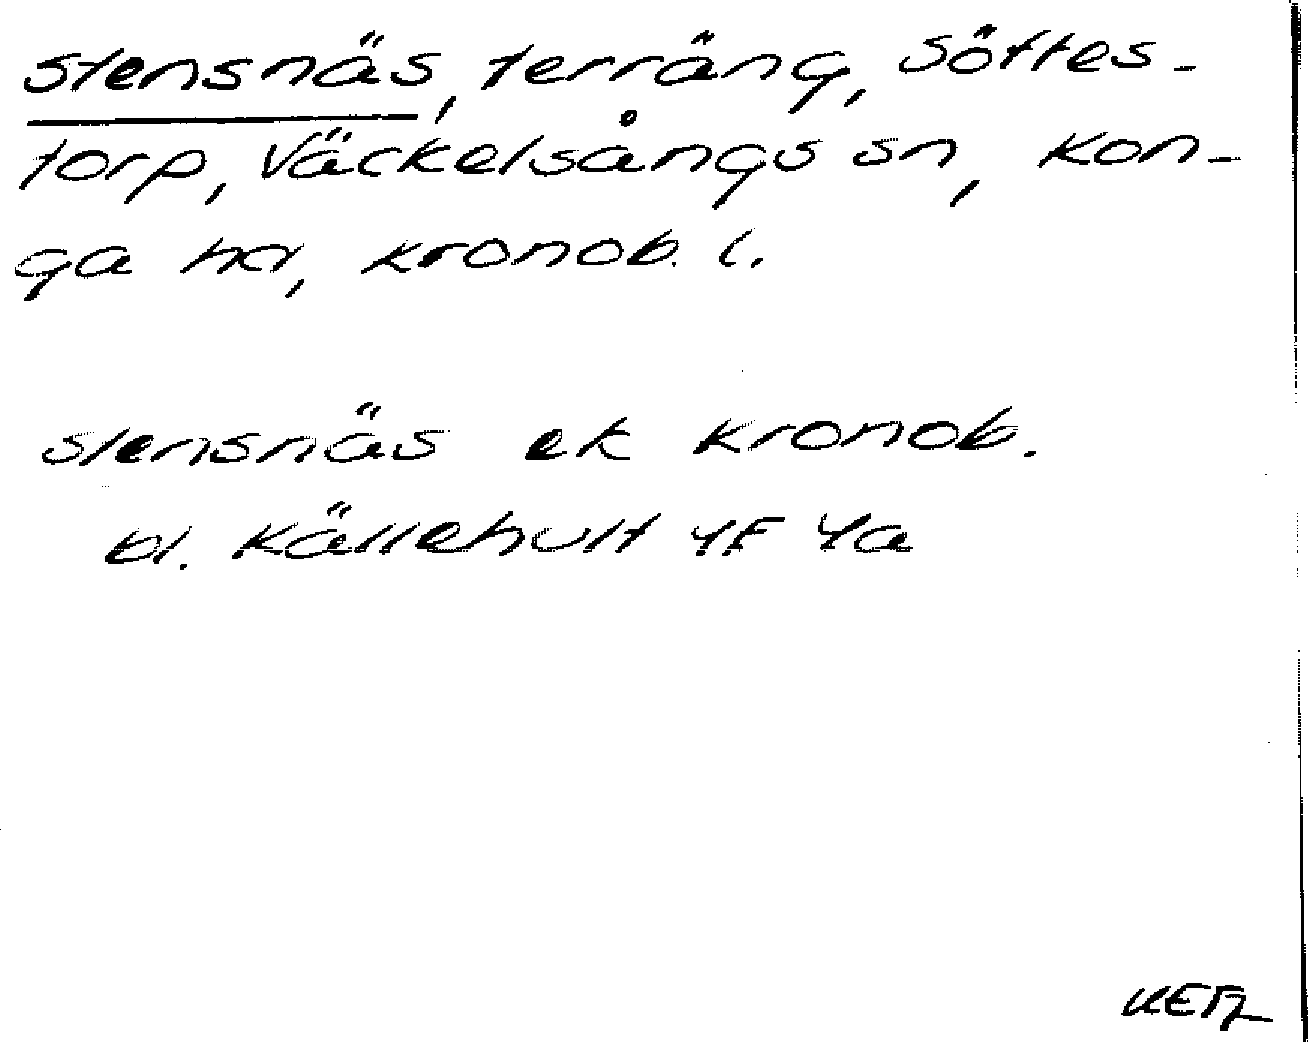 Stensnäs, terräng, Söftes-
torp, Väckelsångs sn, Kon-
ga hd, Kronob. l.
Stensnäs ek Kronob.
bl. Källehult 4F 4a